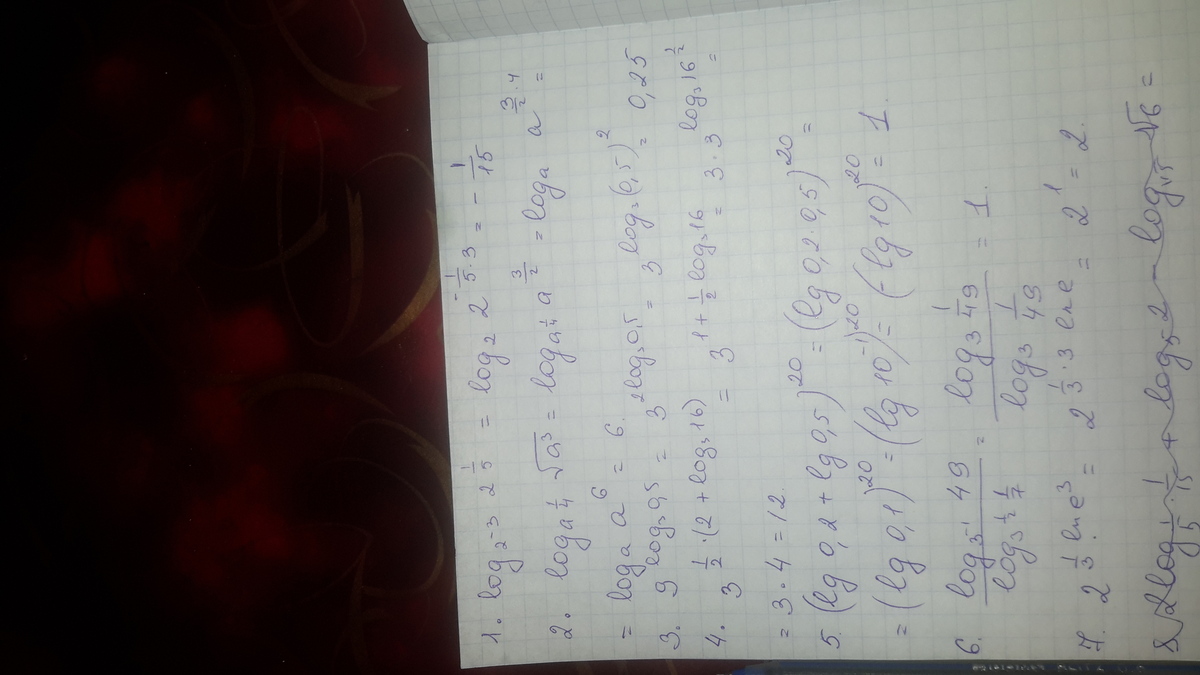 1. log₂₋₃ 2^(1/5) = log₂ 2^(-1/5·3) = -1/15
2. log_(a^(1/4)) √a³ = log_(a^(1/4)) a^(3/2) = log_a a^(3/2·4) =
= log_a a⁶ = 6.
3. 9^(log₃0,5) = 3^(2log₃0,5) = 3^(log₃(0,5)²) = 0,25
4. 3^(1/2·(2+log₃16)) = 3^(1+1/2log₃16) = 3·3^(log₃16^(1/2)) =
= 3·4 = 12.
5. (lg 0,2 + lg 0,5)²⁰ = (lg 0,2·0,5)²⁰ =
= (lg 0,1)²⁰ = (lg 10⁻¹)²⁰ = (-lg 10)²⁰ = 1.
6. log_(3⁻¹) 49 / log_(3^(1/2)) 1/7 = log₃ 1/49 / log₃ 1/49 = 1.
7. 2^(1/3·ln e³) = 2^(1/3·3 ln e) = 2¹ = 2.
8. 2log_(1/5) 1/15 + log₅ 2 - log_(√5) √6 =